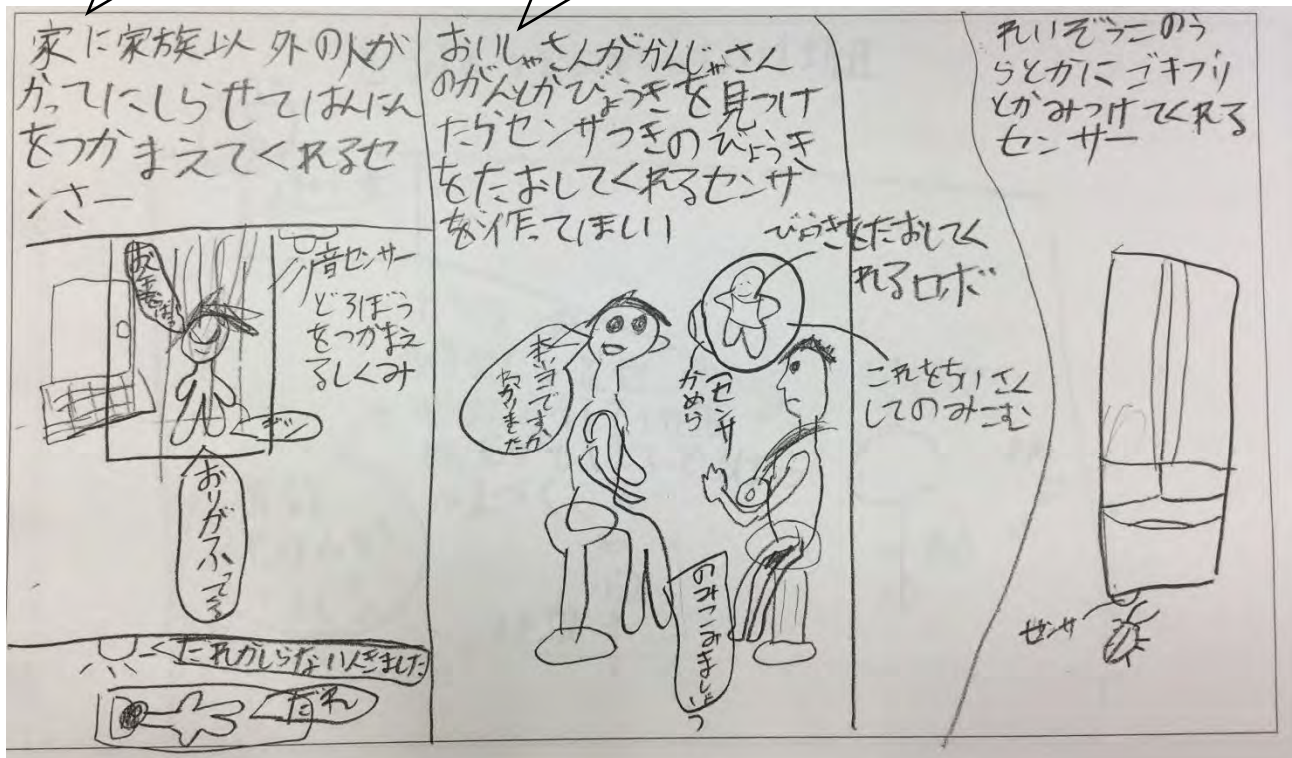 家に家族以外の人が
かってにしらせてはんにん
をつかまえてくれるセ
ンさー
音センサー
どろぼう
をつかまえ
るしくみ
ガシ
おりがふってる
だれかしらない人きました
だれ
おいしゃさんがかんじゃさん
のがんとかびょうきを見つけ
たらセンサつきのびょうき
をたおしてくれるセンサ
を作てほしい
びょうきをたおしてく
れるロボ
本当ですか
わかりました
センサ
かめら
これをちいさく
してのみこむ
のみこみましょう
れいぞうこのう
らとかにゴキブリ
とかみつけてくれる
センサー
センサ